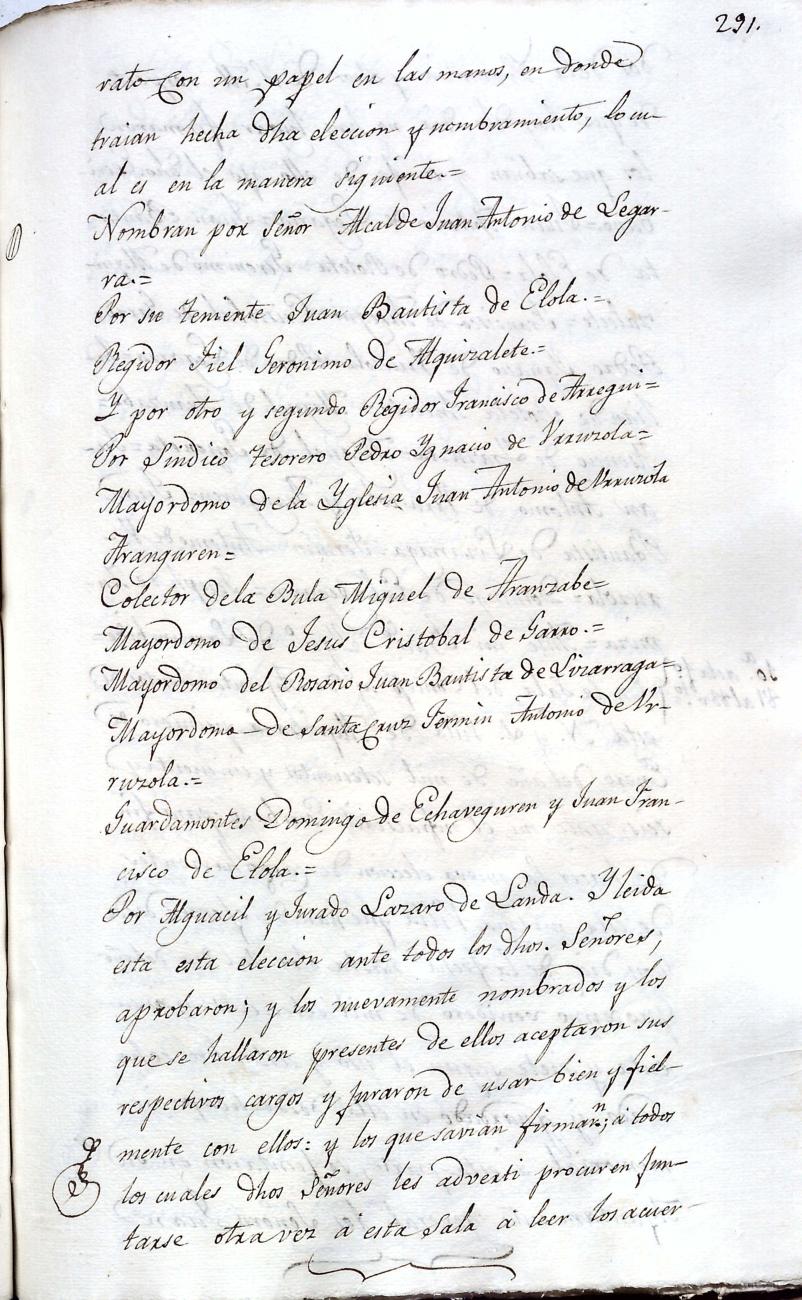 291.
rato con un papel en las manos, en donde
traian hecha dha eleccion y nombramiento, locu-
al es en la manera siguiente.=
Nombran por Señor Alcalde Juan Antonio de Legar-
ra.=
Por su Teniente Juan Bautista de Elola.=
Regidor Fiel Geronimo de Alquizalete.=
Y por otro y segundo Regidor Francisco de Arregui=
Por Sindico Tesorero Pedro Ygnacio de Urruzola=
Mayordomo dela Yglesia Juan Antonio de Urruzola
Aranguren=
Colector dela Bula Miguel de Aranzabe=
Mayordomo de Jesus Cristobal de Garro.=
Mayordomo del Rosario Juan Bautista de Lizarraga=
Mayordomo de Santa Cruz Fermin Antonio de Ur-
ruzola.=
Guardamontes Domingo de Echaveguren y Juan Fran-
cisco de Elola.=
Por Alguacil y Jurado Lazaro de Landa. Y leida
esta esta eleccion ante todos los dhos. Señores,
aprobaron; y los nuevamente nombrados y los
que se hallaron presentes de ellos aceptaron sus
respectivos cargos y juraron de usar bien y fiel-
mente con ellos: y los que savian firmarⁿ; á todos
los cuales dhos Señores les adverti procuren jun-
tarse otra vez á esta Sala á leer los acuer-